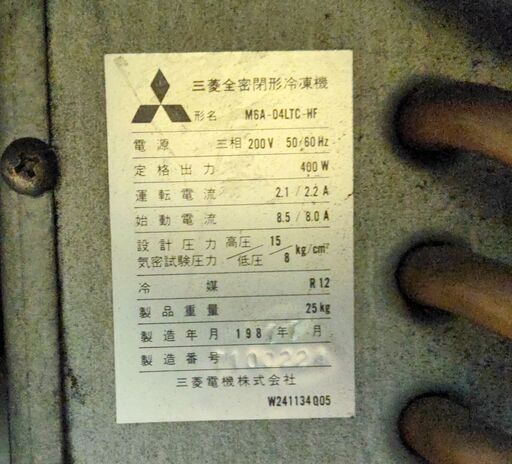 三菱全密閉形冷凍機
形名 M6A-04LTC-HF
電源 三相 200V 50/60Hz
定格出力 400W
運転電流 2.1/2.2A
始動電流 8.5/8.0A
設計圧力 高圧 15
気密試験圧力 低圧 8 kg/cm²
冷媒 R12
製品重量 25kg
製造年月 198 年 月
製造番号
三菱電機株式会社
W241134Q05